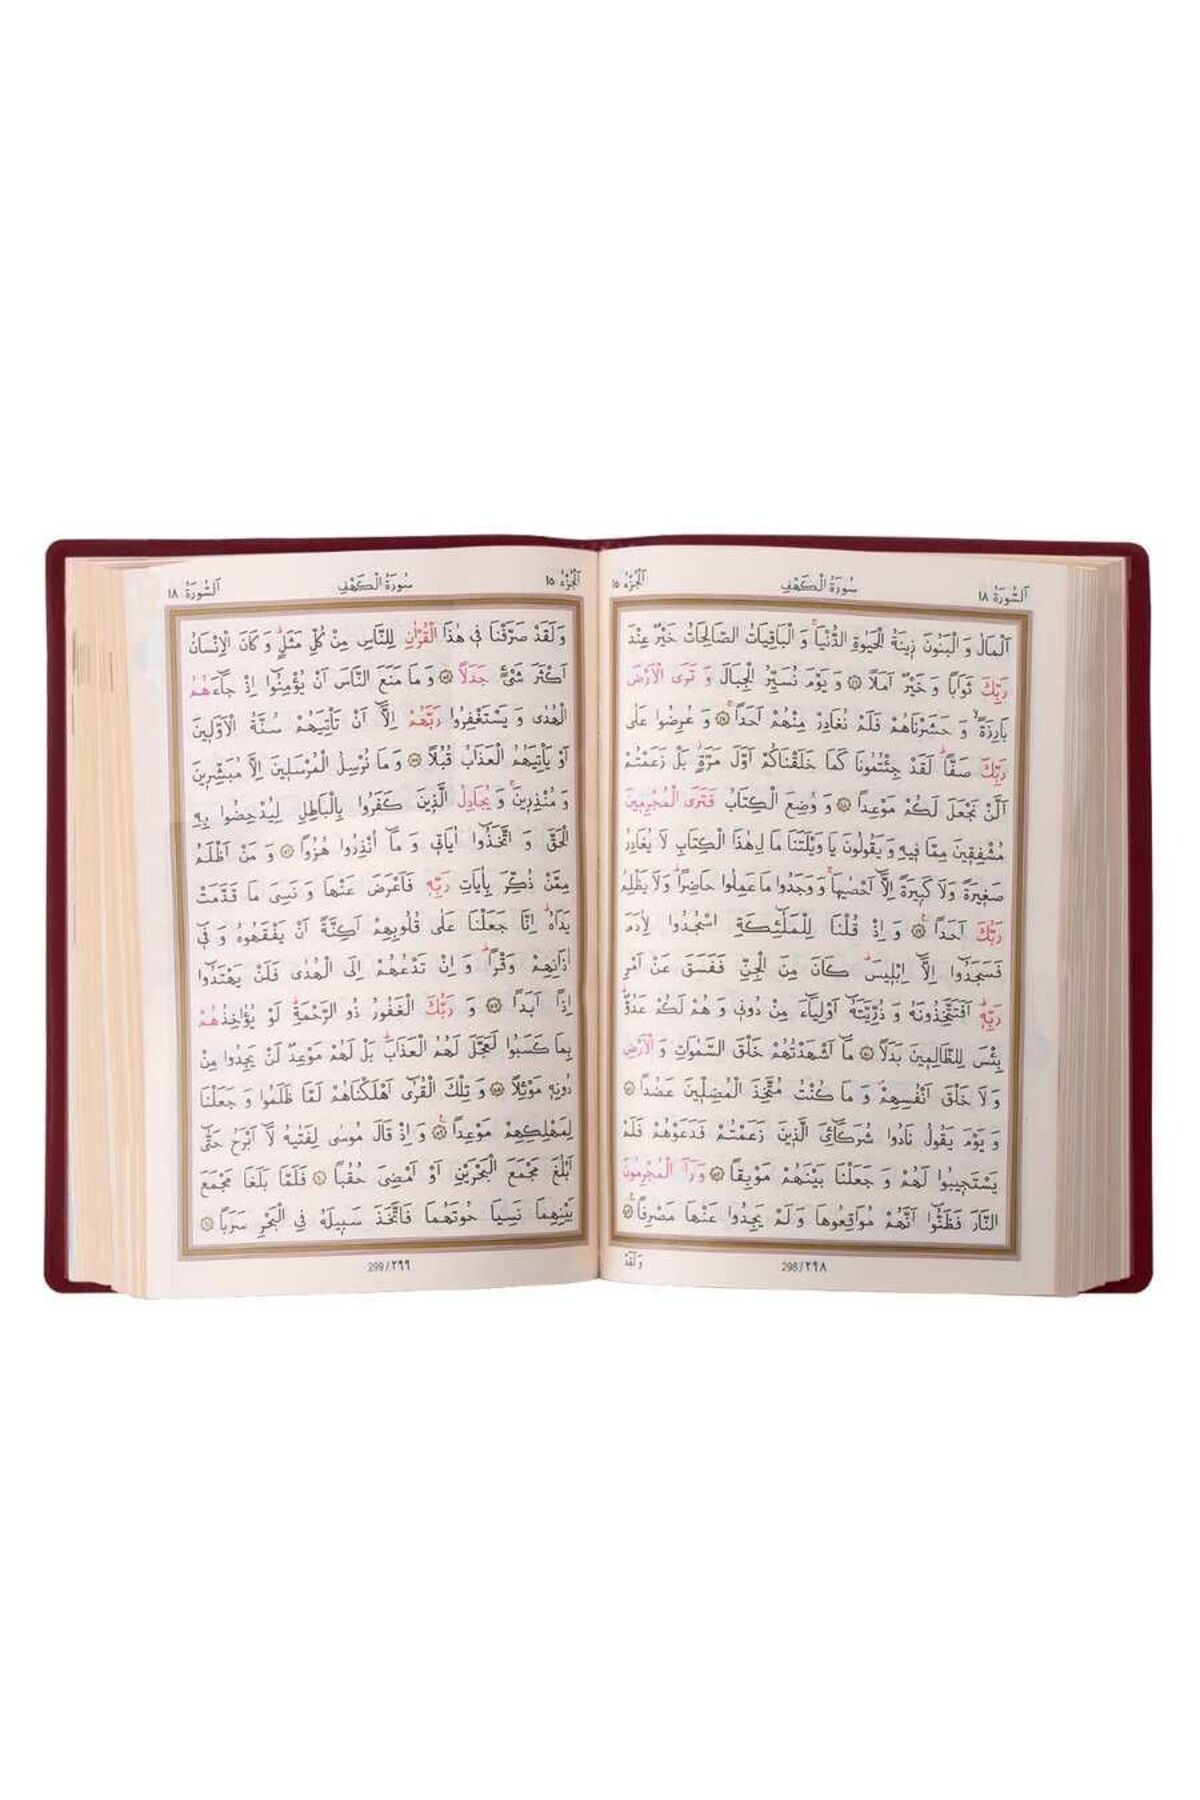 اَلسُّورَةُ ١٨ سُورَةُ الْكَهْفِ اَلْجُزْءُ ١٥
اَلْمَالُ وَ الْبَنُونَ ز۪ينَةُ الْحَيٰوةِ الدُّنْيَاۚ وَ الْبَاقِيَاتُ الصَّالِحَاتُ خَيْرٌ عِنْدَ
رَبِّكَ ثَوَابًا وَ خَيْرٌ اَمَلًا ﴿٤٦﴾ وَ يَوْمَ نُسَيِّرُ الْجِبَالَ وَ تَرَى الْاَرْضَ
بَارِزَةًۙ وَ حَشَرْنَاهُمْ فَلَمْ نُغَادِرْ مِنْهُمْ اَحَدًاۚ ﴿٤٧﴾ وَ عُرِضُوا عَلٰى
رَبِّكَ صَفًّاۜ لَقَدْ جِئْتُمُونَا كَمَا خَلَقْنَاكُمْ اَوَّلَ مَرَّةٍۘ بَلْ زَعَمْتُمْ
اَلَّنْ نَجْعَلَ لَكُمْ مَوْعِدًا ﴿٤٨﴾ وَ وُضِعَ الْكِتَابُ فَتَرَى الْمُجْرِم۪ينَ
مُشْفِق۪ينَ مِمَّا ف۪يهِ وَ يَقُولُونَ يَا وَيْلَتَنَا مَا لِ‍هٰذَا الْكِتَابِ لَا يُغَادِرُ
صَغ۪يرَةً وَلَا كَب۪يرَةً اِلَّٓا اَحْصٰيهَاۚ وَ وَجَدُوا مَا عَمِلُوا حَاضِرًاۜ وَلَا يَظْلِمُ
رَبُّكَ اَحَدًا۟ ﴿٤٩﴾ وَ اِذْ قُلْنَا لِلْمَلٰٓئِكَةِ اسْجُدُوا لِاٰدَمَ
فَسَجَدُٓوا اِلَّٓا اِبْل۪يسَۜ كَانَ مِنَ الْجِنِّ فَفَسَقَ عَنْ اَمْرِ
رَبِّه۪ۜ اَفَتَتَّخِذُونَهُ وَ ذُرِّيَّتَهُٓ اَوْلِيَٓاءَ مِنْ دُون۪ي وَ هُمْ لَكُمْ عَدُوٌّۜ
بِئْسَ لِلظَّالِم۪ينَ بَدَلًا ﴿٥٠﴾ مَٓا اَشْهَدْتُهُمْ خَلْقَ السَّمٰوَاتِ وَ الْاَرْضِ
وَ لَا خَلْقَ اَنْفُسِهِمْۖ وَ مَا كُنْتُ مُتَّخِذَ الْمُضِلّ۪ينَ عَضُدًا ﴿٥١﴾
وَ يَوْمَ يَقُولُ نَادُوا شُرَكَٓائِيَ الَّذ۪ينَ زَعَمْتُمْ فَدَعَوْهُمْ فَلَمْ
يَسْتَج۪يبُوا لَهُمْ وَ جَعَلْنَا بَيْنَهُمْ مَوْبِقًا ﴿٥٢﴾ وَ رَاَ الْمُجْرِمُونَ
النَّارَ فَظَنُّٓوا اَنَّهُمْ مُوَاقِعُوهَا وَ لَمْ يَجِدُوا عَنْهَا مَصْرِفًا۟ ﴿٥٣﴾
298/٢٩٨ وَلَقَدْ
اَلسُّورَةُ ١٨ سُورَةُ الْكَهْفِ اَلْجُزْءُ ١٥
وَ لَقَدْ صَرَّفْنَا ف۪ي هٰذَا الْقُرْاٰنِ لِلنَّاسِ مِنْ كُلِّ مَثَلٍۜ وَ كَانَ الْاِنْسَانُ
اَكْثَرَ شَيْءٍ جَدَلًا ﴿٥٤﴾ وَ مَا مَنَعَ النَّاسَ اَنْ يُؤْمِنُٓوا اِذْ جَٓاءَهُمُ
الْهُدٰى وَ يَسْتَغْفِرُوا رَبَّهُمْ اِلَّٓا اَنْ تَأْتِيَهُمْ سُنَّةُ الْاَوَّل۪ينَ
اَوْ يَأْتِيَهُمُ الْعَذَابُ قُبُلًا ﴿٥٥﴾ وَ مَا نُرْسِلُ الْمُرْسَل۪ينَ اِلَّا مُبَشِّر۪ينَ
وَ مُنْذِر۪ينَۚ وَ يُجَادِلُ الَّذ۪ينَ كَفَرُوا بِالْبَاطِلِ لِيُدْحِضُوا بِهِ
الْحَقَّ وَ اتَّخَذُٓوا اٰيَات۪ي وَ مَٓا اُنْذِرُوا هُزُوًا ﴿٥٦﴾ وَ مَنْ اَظْلَمُ
مِمَّنْ ذُكِّرَ بِاٰيَاتِ رَبِّه۪ فَاَعْرَضَ عَنْهَا وَ نَسِيَ مَا قَدَّمَتْ
يَدَاهُۜ اِنَّا جَعَلْنَا عَلٰى قُلُوبِهِمْ اَكِنَّةً اَنْ يَفْقَهُوهُ وَ ف۪ٓي
اٰذَانِهِمْ وَقْرًاۜ وَ اِنْ تَدْعُهُمْ اِلَى الْهُدٰى فَلَنْ يَهْتَدُٓوا
اِذًا اَبَدًا ﴿٥٧﴾ وَ رَبُّكَ الْغَفُورُ ذُو الرَّحْمَةِۜ لَوْ يُؤَاخِذُهُمْ
بِمَا كَسَبُوا لَعَجَّلَ لَهُمُ الْعَذَابَۜ بَلْ لَهُمْ مَوْعِدٌ لَنْ يَجِدُوا مِنْ
دُونِه۪ مَوْئِلًا ﴿٥٨﴾ وَ تِلْكَ الْقُرٰٓى اَهْلَكْنَاهُمْ لَمَّا ظَلَمُوا وَ جَعَلْنَا
لِمَهْلِكِهِمْ مَوْعِدًا۟ ﴿٥٩﴾ وَ اِذْ قَالَ مُوسٰى لِفَتٰيهُ لَٓا اَبْرَحُ حَتّٰٓى
اَبْلُغَ مَجْمَعَ الْبَحْرَيْنِ اَوْ اَمْضِيَ حُقُبًا ﴿٦٠﴾ فَلَمَّا بَلَغَا مَجْمَعَ
بَيْنِهِمَا نَسِيَا حُوتَهُمَا فَاتَّخَذَ سَب۪يلَهُ فِي الْبَحْرِ سَرَبًا ﴿٦١﴾
299/٢٩٩